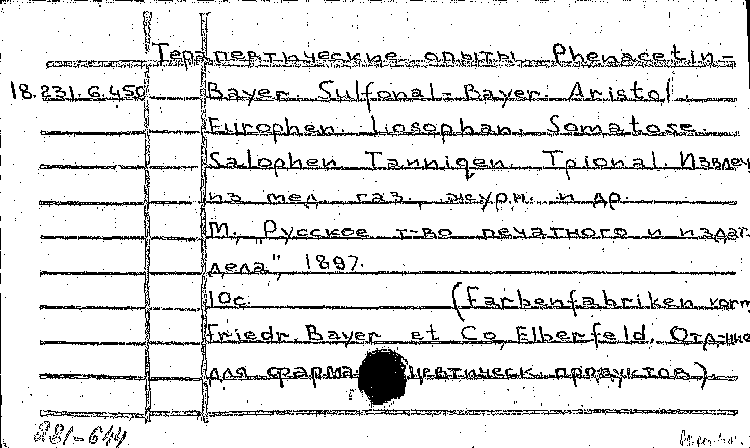 Терапевтические опыты Phenacetin-
18.231.6.450 Bayer. Sulfonal-Bayer. Aristol.
Europhen. Losophan. Somatose.
Salophen. Tannigen. Trional. Извлеч
из мед. газ., журн. и др.
М., "Русское т-во печатного и издат.
дела", 1897.
10с. (Farbenfabriken vorm
Friedr. Bayer et Co, Elberfeld. Отд-ние
для фармацевтическ. продуктов).
281-644